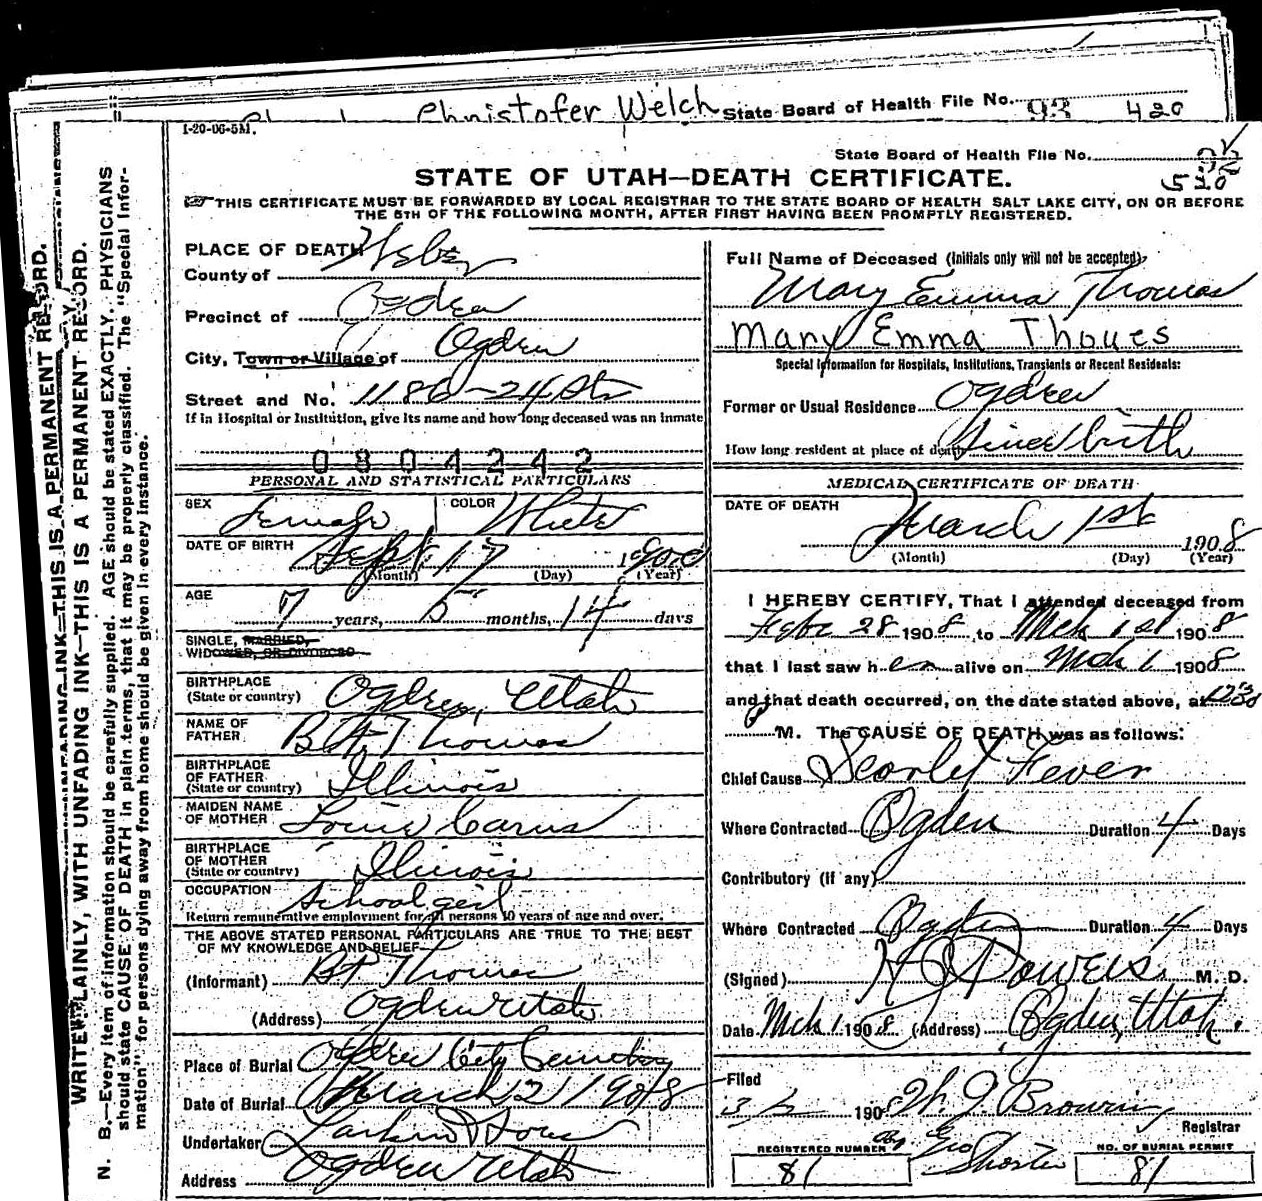 Christofer Welch State Board of Health File No. 93 420
1-20-06-5M.
State Board of Health File No.
STATE OF UTAH—DEATH CERTIFICATE. 520
THIS CERTIFICATE MUST BE FORWARDED BY LOCAL REGISTRAR TO THE STATE BOARD OF HEALTH SALT LAKE CITY, ON OR BEFORE
THE 5TH OF THE FOLLOWING MONTH, AFTER FIRST HAVING BEEN PROMPTLY REGISTERED.
WRITE PLAINLY, WITH UNFADING INK—THIS IS A PERMANENT RECORD.
N. B.—Every item of information should be carefully supplied. AGE should be stated EXACTLY. PHYSICIANS
should state CAUSE OF DEATH in plain terms, that it may be properly classified. The "Special Infor-
mation" for persons dying away from home should be given in every instance.
PLACE OF DEATH
County of Weber
Precinct of Ogden
City, Town or Village of Ogden
Street and No. 1186-24 St
If in Hospital or Institution, give its name and how long deceased was an inmate
0804242
PERSONAL AND STATISTICAL PARTICULARS
SEX Female COLOR White
DATE OF BIRTH Sept 17 1900
(Month) (Day) (Year)
AGE
7 years, 5 months, 14 days
SINGLE, MARRIED,
WIDOWED, OR DIVORCED
BIRTHPLACE
(State or country) Ogden, Utah
NAME OF
FATHER B F Thomas
BIRTHPLACE
OF FATHER
(State or country) Illinois
MAIDEN NAME
OF MOTHER Louie Carns
BIRTHPLACE
OF MOTHER
(State or country) Illinois
OCCUPATION School girl
Return remunerative employment for all persons 10 years of age and over.
THE ABOVE STATED PERSONAL PARTICULARS ARE TRUE TO THE BEST
OF MY KNOWLEDGE AND BELIEF
(Informant) B F Thomas
(Address) Ogden Utah
Place of Burial Ogden City Cemetery
Date of Burial March 2 1908
Undertaker Larkin & Sons
Address Ogden Utah
Full Name of Deceased (Initials only will not be accepted)
Mary Emma Thomas
Mary Emma Thoues
Special Information for Hospitals, Institutions, Transients or Recent Residents:
Former or Usual Residence Ogden
How long resident at place of death Since birth
MEDICAL CERTIFICATE OF DEATH
DATE OF DEATH
March 1st 1908
(Month) (Day) (Year)
I HEREBY CERTIFY, That I attended deceased from
Feb 28 1908 to Mch 1st 1908
that I last saw her alive on Mch 1 1908
and that death occurred, on the date stated above, at 12:30
P M. The CAUSE OF DEATH was as follows:
Chief Cause Scarlet Fever
Where Contracted Ogden Duration 4 Days
Contributory (if any)
Where Contracted Ogden Duration 4 Days
(Signed) H J Powers M. D.
Date Mch 1 1908 (Address) Ogden, Utah.
Filed
3/2 1908 W. J. Browning
Registrar
By Geo Shorten
REGISTERED NUMBER NO. OF BURIAL PERMIT
81 81